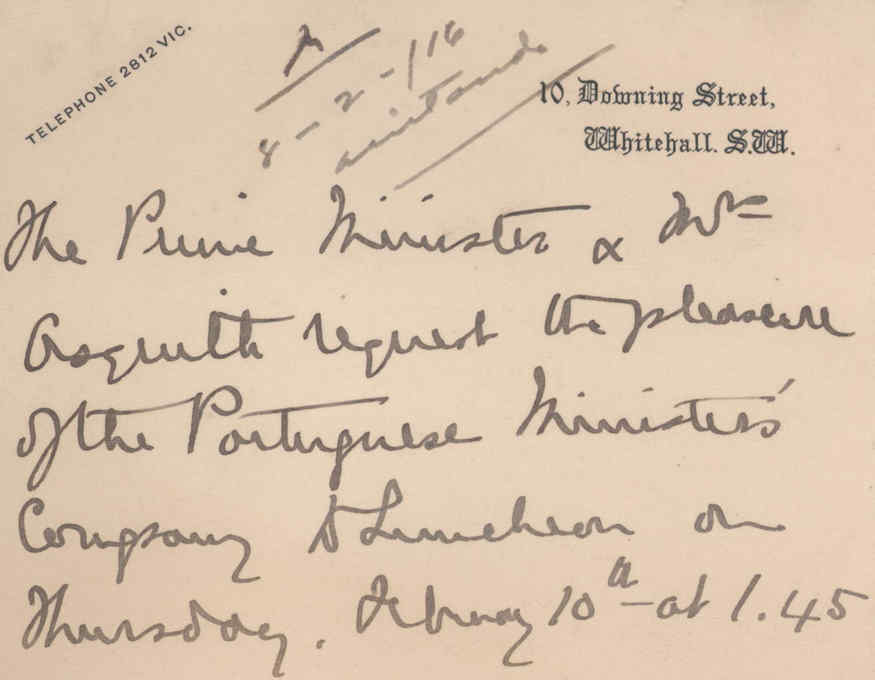 TELEPHONE 2812 VIC.
8-2-116
10, Downing Street,
Whitehall. S.W.
The Prime Minister & Mrs
Asquith request the pleasure
of the Portuguese Minister's
Company to Luncheon on
Thursday, February 10th at 1.45